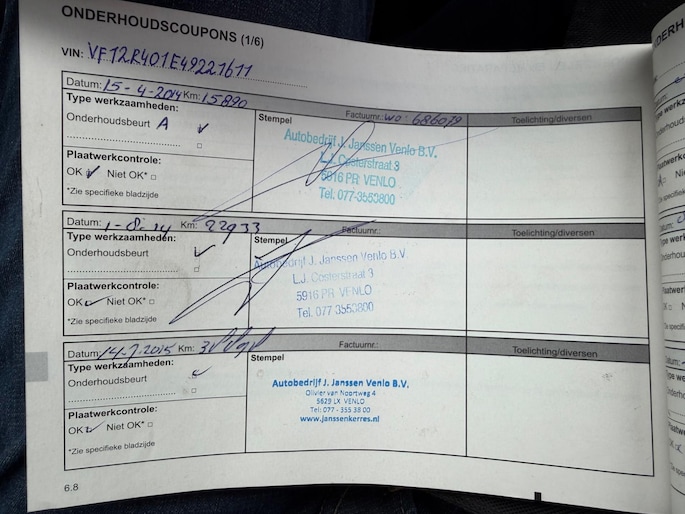 ONDERHOUDSCOUPONS (1/6)
VIN: VF12R401E49221611
Datum: 15-4-2014 Km: 15890 Factuurnr.: WO-686079 Toelichting/diversen
Type werkzaamheden:
Onderhoudsbeurt A
Plaatwerkcontrole:
OK Niet OK*
*Zie specifieke bladzijde
Stempel
Autobedrijf J. Janssen Venlo B.V.
L.J. Costerstraat 3
5916 PR VENLO
Tel. 077-3553800
Datum: 1-8-14 Km: 22933 Factuurnr.: Toelichting/diversen
Type werkzaamheden:
Onderhoudsbeurt
Plaatwerkcontrole:
OK Niet OK*
*Zie specifieke bladzijde
Stempel
Autobedrijf J. Janssen Venlo B.V.
L.J. Costerstraat 3
5916 PR VENLO
Tel. 077 3553800
Datum: 14-7-2015 Km: Factuurnr.: Toelichting/diversen
Type werkzaamheden:
Onderhoudsbeurt
Plaatwerkcontrole:
OK Niet OK*
*Zie specifieke bladzijde
Stempel
Autobedrijf J. Janssen Venlo B.V.
Olivier van Noortweg 4
5629 LX VENLO
Tel: 077 - 355 38 00
www.janssenkerres.nl
6.8